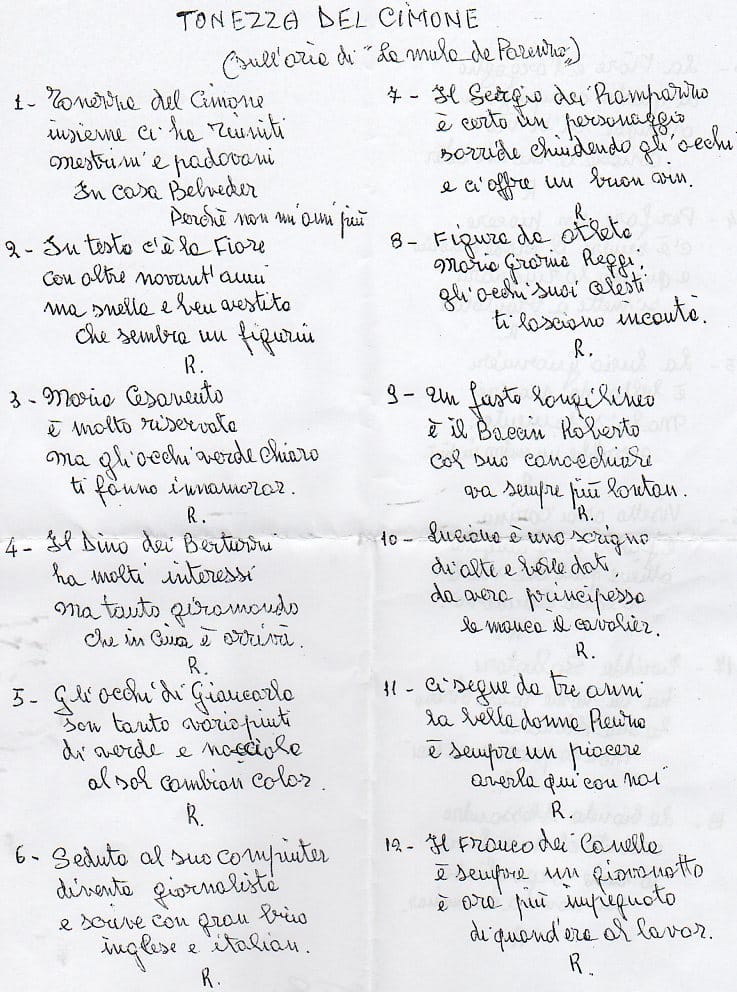 TONEZZA DEL CIMONE
(sull'aria di "La mula de Parenzo")
1- Tonezza del Cimone
insieme ci ha riuniti
mestrini e padovani
In casa Belveder
Perchè non m'ami più
2- In testa c'è la Fiore
con oltre novant'anni
ma snella e ben vestita
che sembra un figurin
R.
3- Maria Cesarento
è molto riservata
ma gli occhi verde chiaro
ti fanno innamorar.
R.
4- Il Dino dei Bertozzi
ha molti interessi
ma tanto giramondo
che in Cina è arrivà.
R.
5- Gli occhi di Giancarla
son tanto variopinti
di verde e nocciola
al sol cambian color.
R.
6- Seduta al suo computer
diventa giornalista
e scrive con gran brio
inglese e italian.
R.
7- Il Sergio dei Ramparzo
è certo un personaggio
sorride chiudendo gli occhi
e ci offre un buon vin.
R.
8- Figura da atleta
Maria Grazia Reggi,
gli occhi suoi celesti
ti lasciano incantà.
R.
9- Un fusto longilineo
è il Baccan Roberto
col suo canocchiale
va sempre più lontan.
R.
10- Luciana è uno scrigno
di alte e belle doti,
da vera principessa
le manca il cavalier.
R.
11- Ci segue da tre anni
la bella donna Pieura
è sempre un piacere
averla qui con noi
R.
12- Il Franco dei Canella
è sempre un giovanotto
è ora più impegnato
di quand'era al lavor.
R.